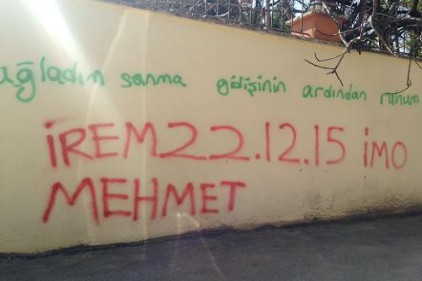 ağladım sanma gidişinin ardından ranum
İREM 22.12.15 İMO
MEHMET